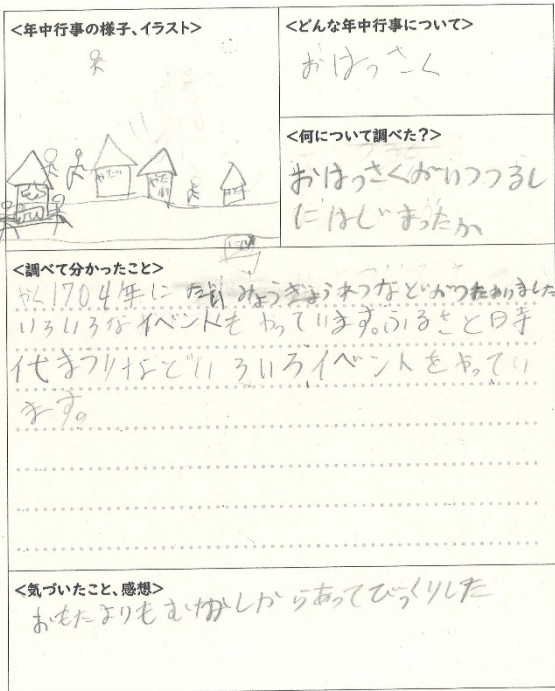 <年中行事の様子、イラスト>
やたい
<どんな年中行事について>
おはっさく
<何について調べた?>
おはっさくがいつつるし
にはじまったか
<調べて分かったこと>
やく1704年に だいみょうぎょうれつなどがつたわりました
いろいろなイベントもやっています。ふるさと時
代まつりなどいろいろイベントをやってい
ます。
<気づいたこと、感想>
おもたよりもむかしからあってびっくりした